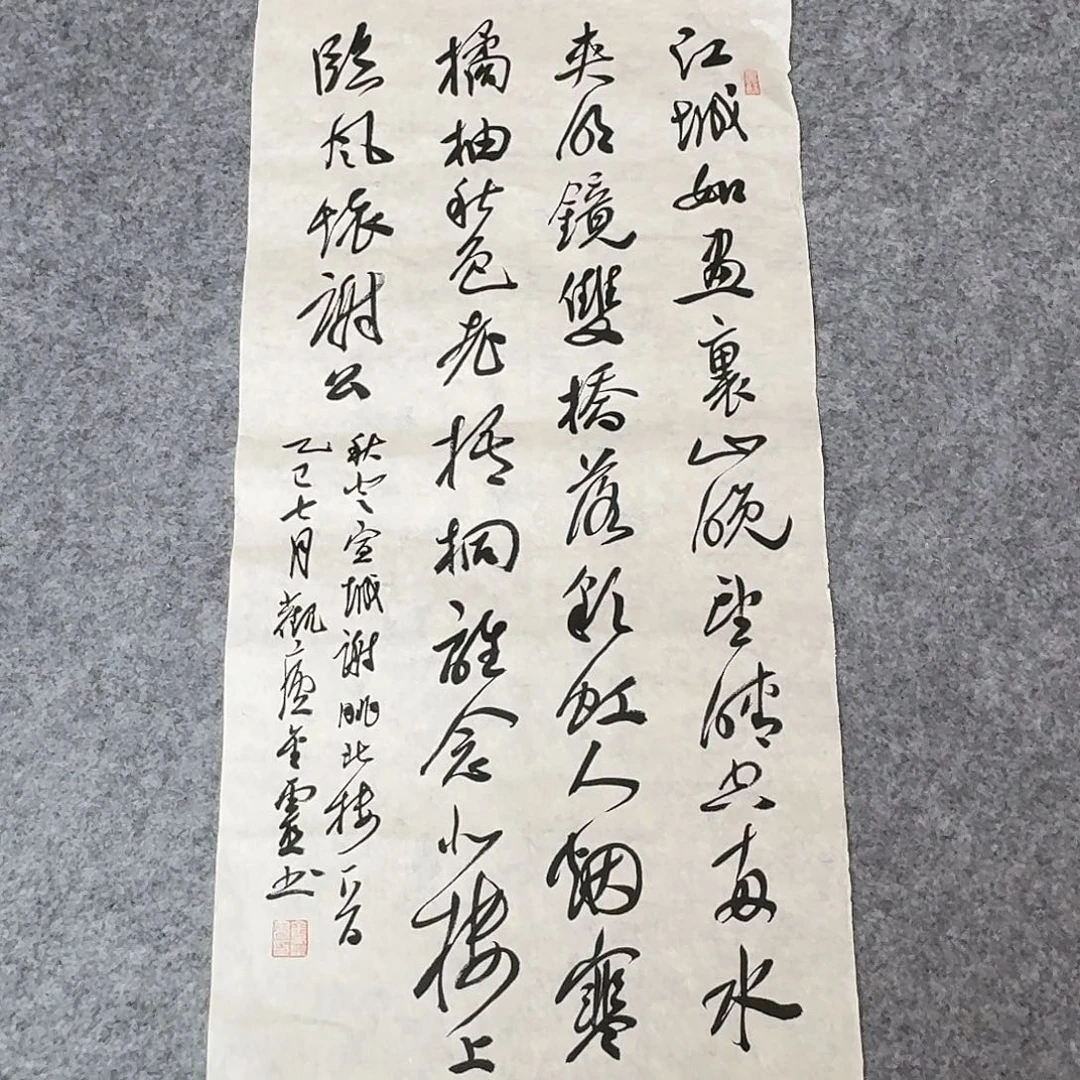 江城如畫裏山晚望晴空兩水
夾明鏡雙橋落彩虹人烟寒
橘柚秋色老梧桐誰念北樓上
臨風懷謝公
秋登宣城謝朓北樓一首
乙巳七月觀金靈书